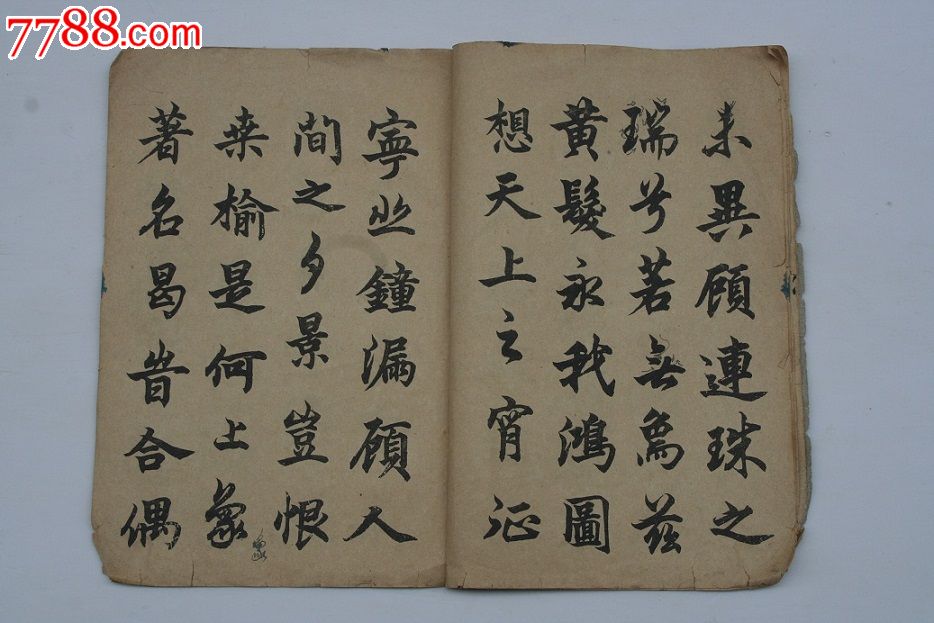 7788.com热线
未異顧連珠之
瑞兮若無為茲
黃髮永我鴻圖
想天上之宵征
寧鐘漏顧人
間之夕景豈恨
桑榆是何上象
著名曷合偶